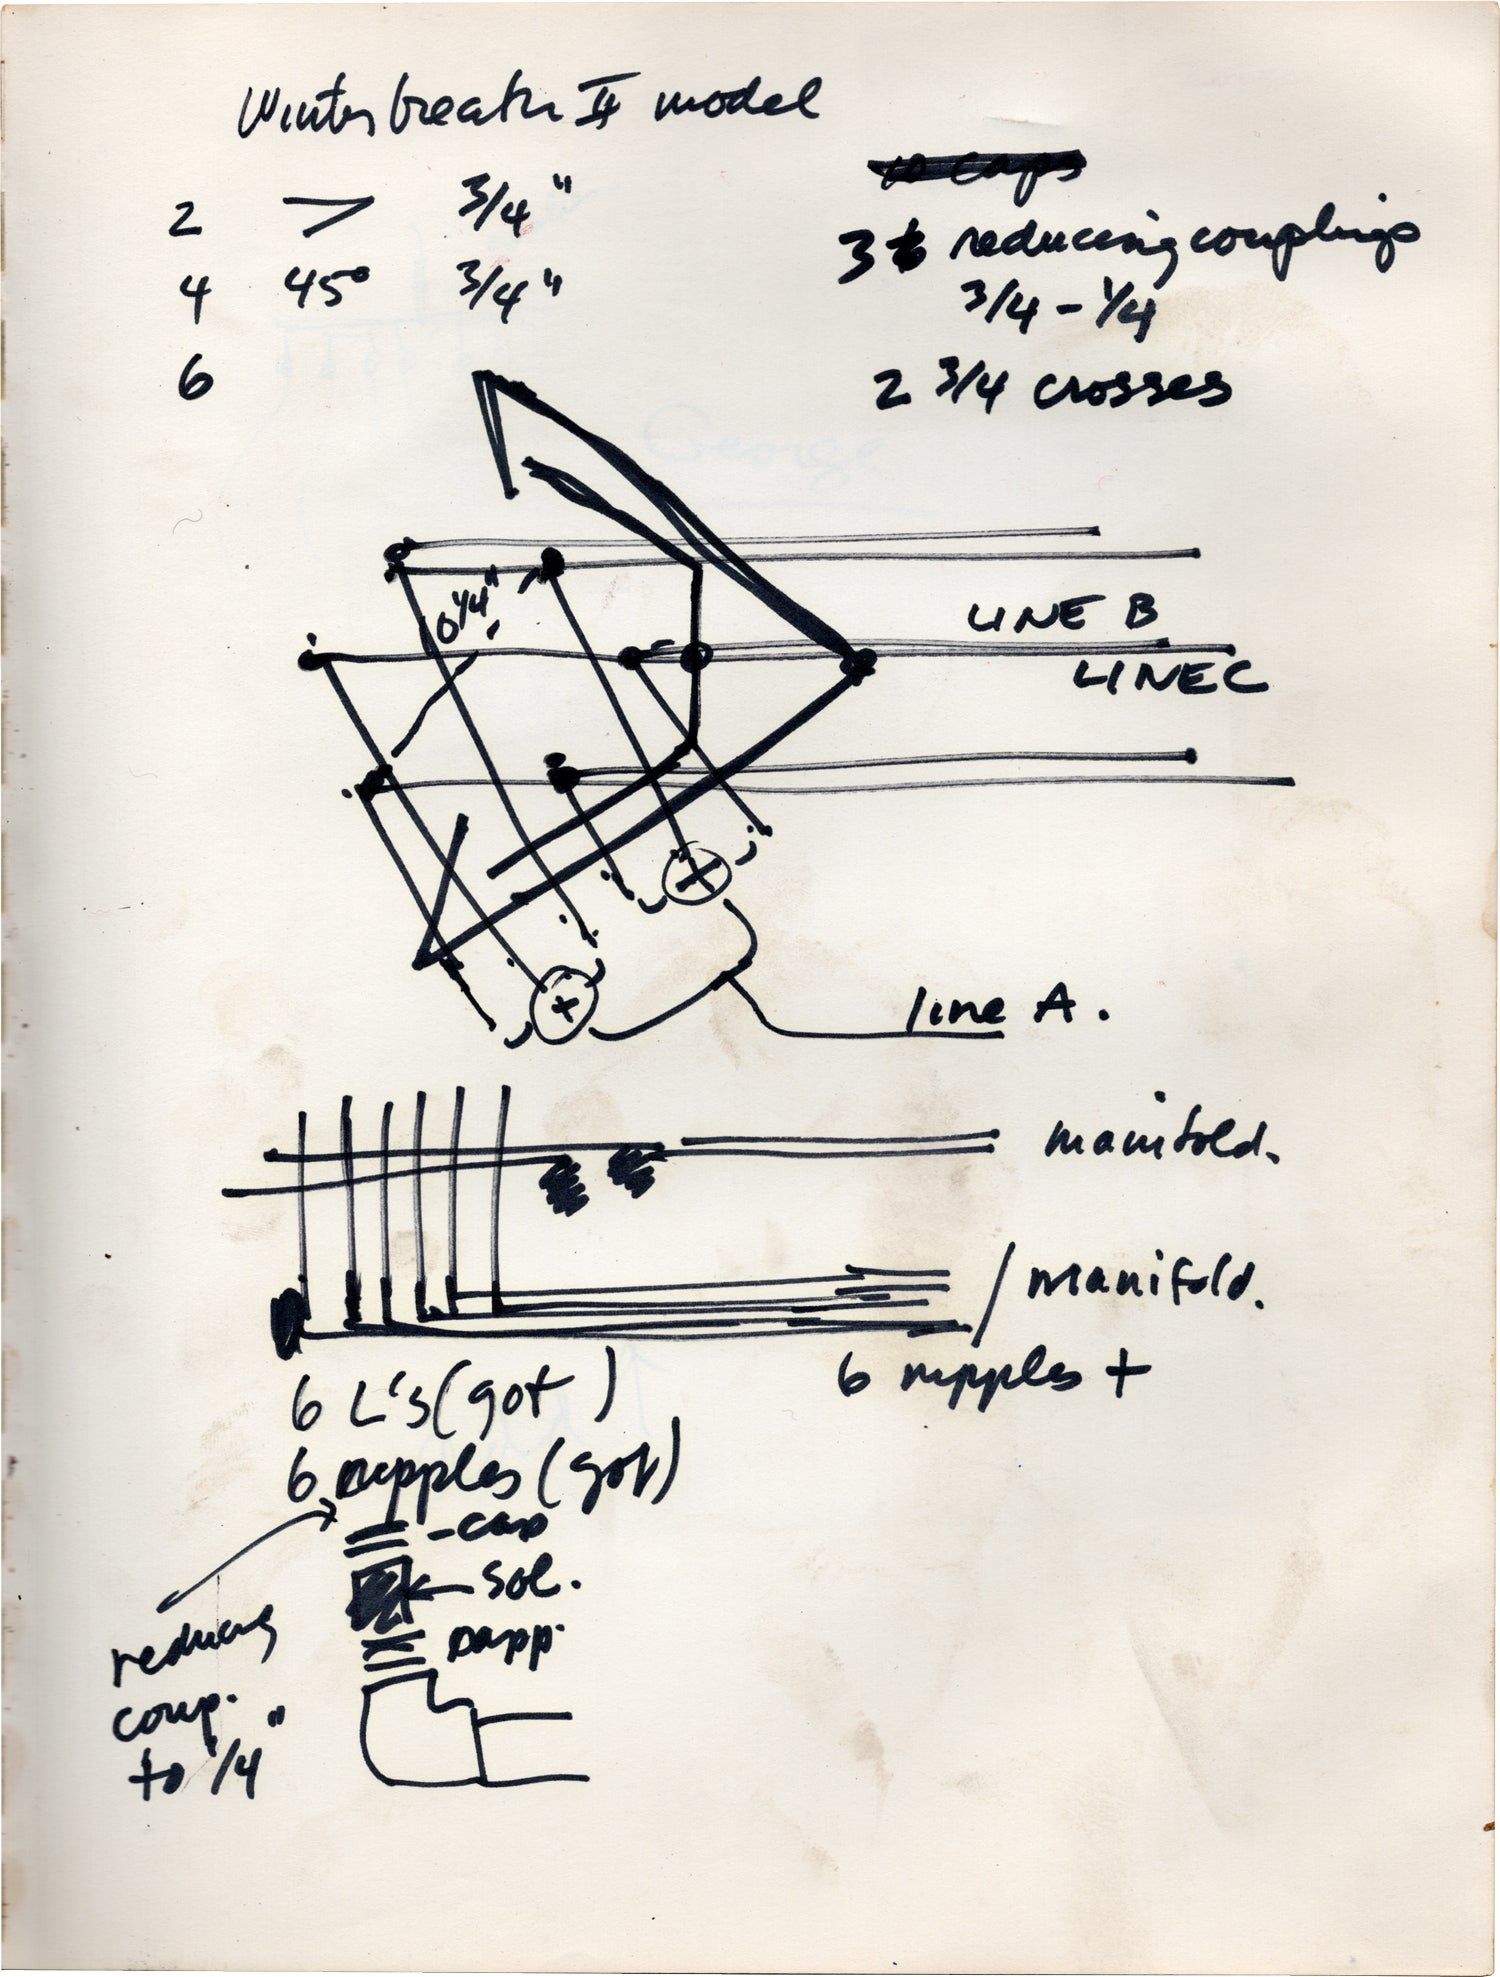 Winterbreath II model
2 > 3/4"
4 45° 3/4"
6
10 caps
3 reducing couplings
3/4 - 1/4
2 3/4 crosses
1/4"
LINE B
LINE C
line A.
manifold.
manifold.
6 nipples +
6 L's (got)
6 nipples (got)
- cap
sol.
napp.
reducing
coup.
to 1/4"
George